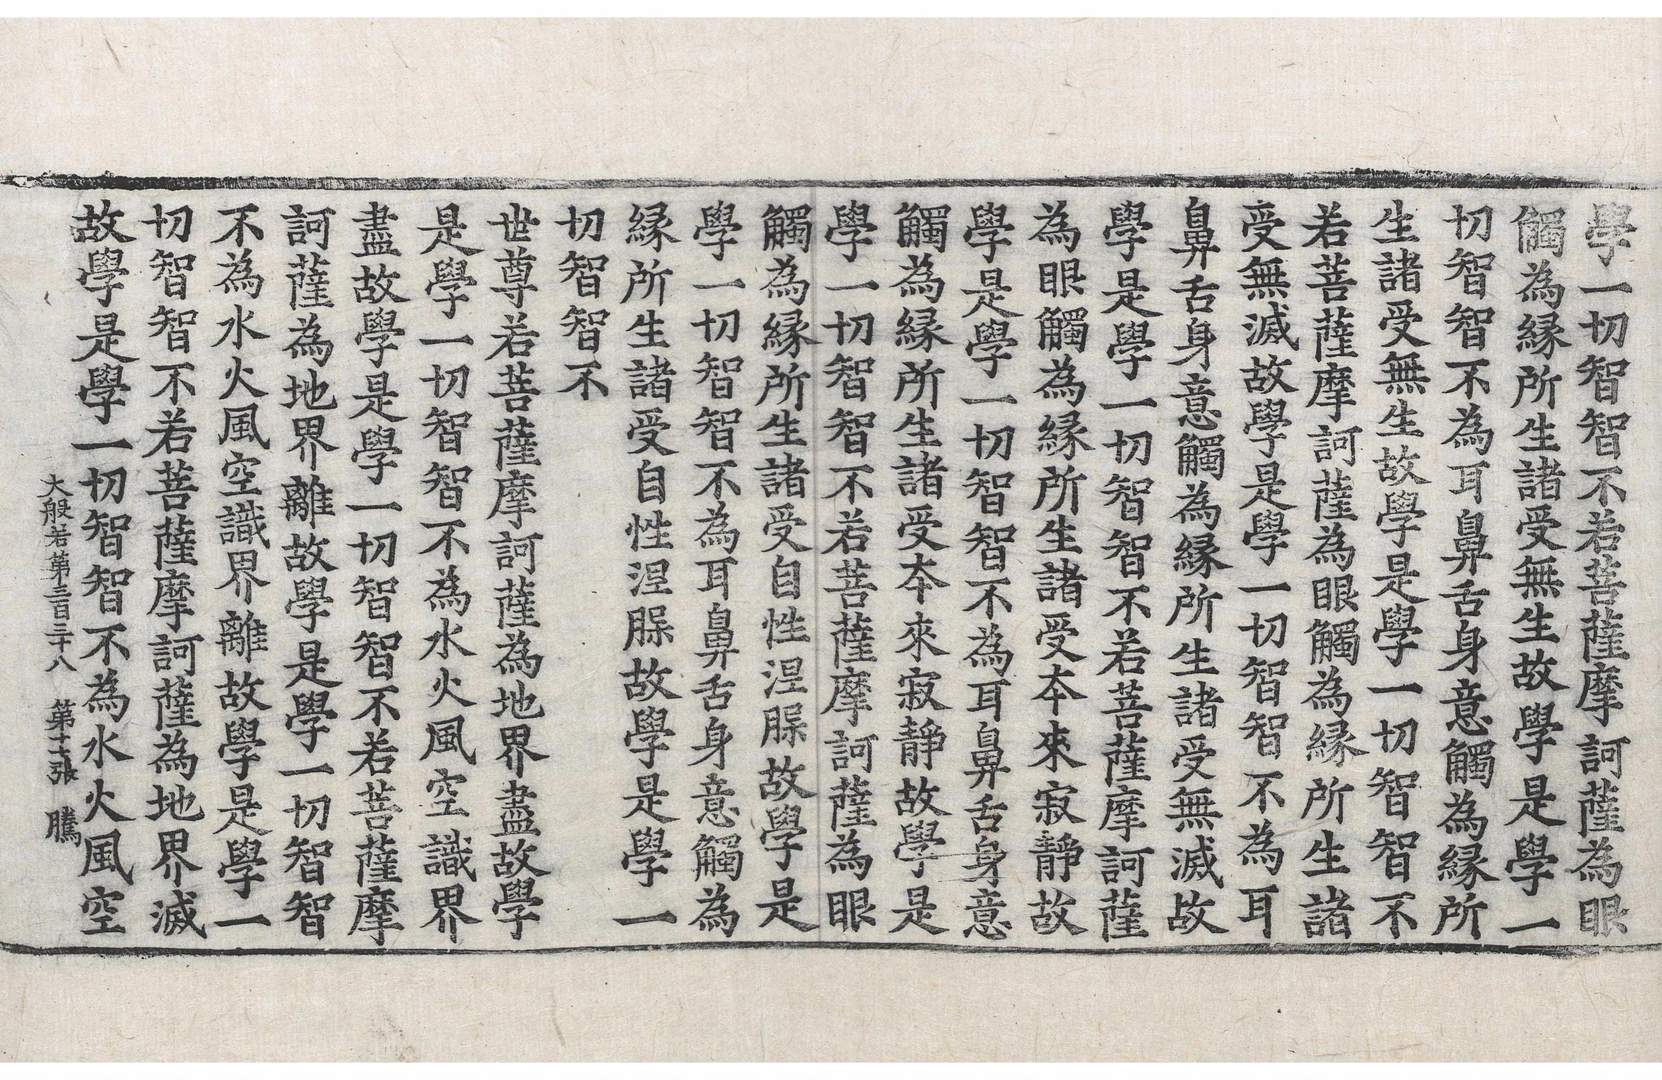 學一切智智不若菩薩摩訶薩為眼
觸為緣所生諸受無生故學是學一
切智智不為耳鼻舌身意觸為緣所
生諸受無生故學是學一切智智不
若菩薩摩訶薩為眼觸為緣所生諸
受無滅故學是學一切智智不為耳
鼻舌身意觸為緣所生諸受無滅故
學是學一切智智不若菩薩摩訶薩
為眼觸為緣所生諸受本來寂靜故
學是學一切智智不為耳鼻舌身意
觸為緣所生諸受本來寂靜故學是
學一切智智不若菩薩摩訶薩為眼
觸為緣所生諸受自性涅槃故學是
學一切智智不為耳鼻舌身意觸為
緣所生諸受自性涅槃故學是學一
切智智不
世尊若菩薩摩訶薩為地界盡故學
是學一切智智不為水火風空識界
盡故學是學一切智智不若菩薩摩
訶薩為地界離故學是學一切智智
不為水火風空識界離故學是學一
切智智不若菩薩摩訶薩為地界滅
故學是學一切智智不為水火風空
大般若第三百三十八 第十張 騰